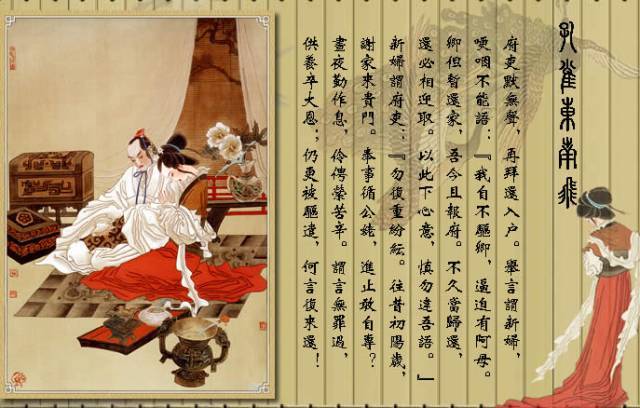 孔雀東南飛
府吏默無聲，再拜還入户。舉言謂新婦，
哽咽不能語：『我自不驅卿，逼迫有阿母。
卿但暫還家，吾今且報府。不久當歸還，
還必相迎取。以此下心意，慎勿違吾語。』
新婦謂府吏：『勿復重紛紜。往昔初陽歲，
謝家來貴門。奉事循公姥，進止敢自專？
晝夜勤作息，伶俜縈苦辛。謂言無罪過，
供養卒大恩；仍更被驅遣，何言復來還！